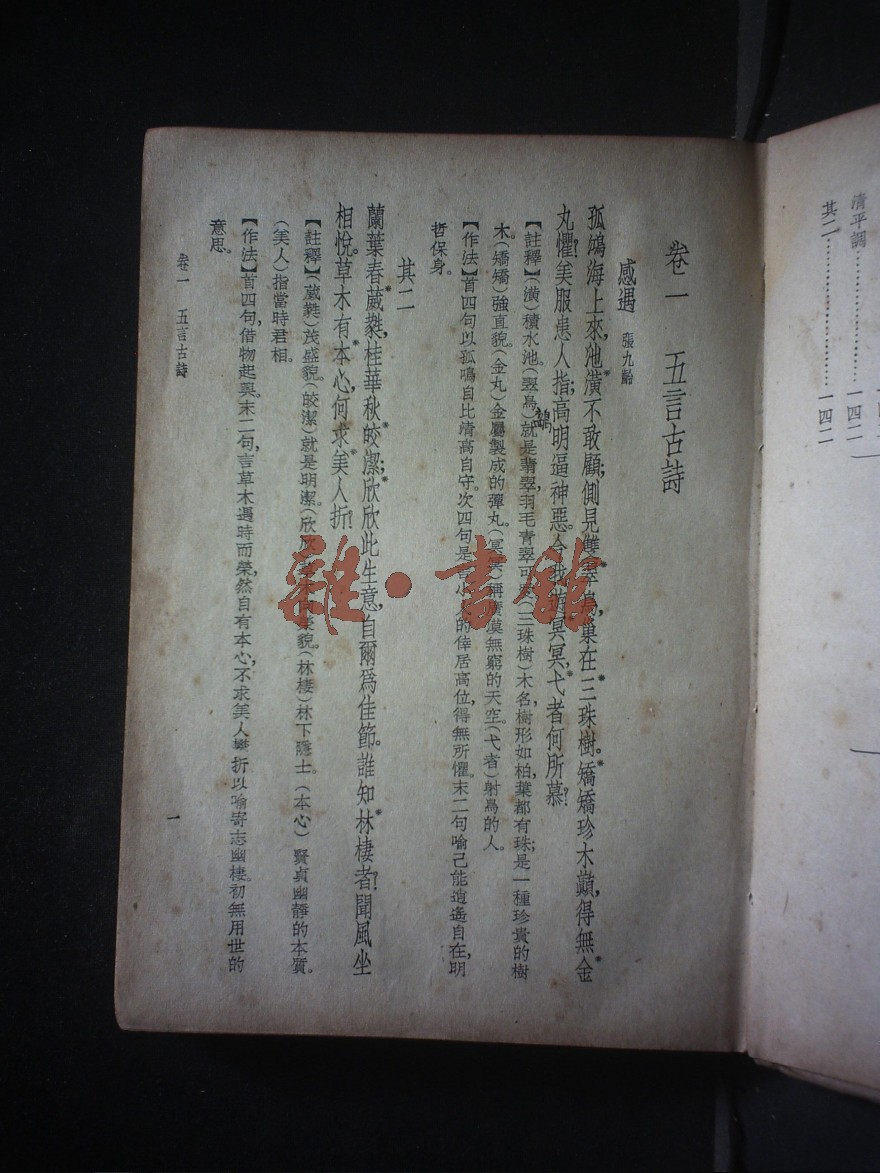 清平調……………一四二
其二………………一四二
卷一　五言古詩
感遇　張九齡
孤鴻海上來，池潢不敢顧；側見雙翠鳥，巢在三珠樹。矯矯珍木巔，得無金
丸懼？美服患人指；高明逼神惡。今我遊冥冥，弋者何所慕？
【註釋】（潢）積水池。（翠鳥）就是翡翠，羽毛青翠可愛。（三珠樹）木名，樹形如柏，葉都有珠；是一種珍貴的樹
木。（矯矯）強直貌。（金丸）金屬製成的彈丸。（冥冥）稱廣漠無窮的天空。（弋者）射鳥的人。
【作法】首四句以孤鳴自比清高自守。次四句是言小人的倖居高位，得無所懼。末二句喻己能逍遙自在，明
鴻
哲保身。
其二
蘭葉春葳蕤，桂華秋皎潔；欣欣此生意，自爾爲佳節。誰知林棲者？聞風坐
相悅。草木有本心，何求美人折？
【註釋】（葳蕤）茂盛貌。（皎潔）就是明潔。（欣欣）貌。（林棲）林下隱士。（本心）賢貞幽靜的本質。
（美人）指當時君相。
【作法】首四句，借物起興。末二句，言草木遇時而榮，然自有本心，不求美人攀折。以喻寄志幽棲。初無用世的
意思。
卷一　五言古詩
一
雜·書館